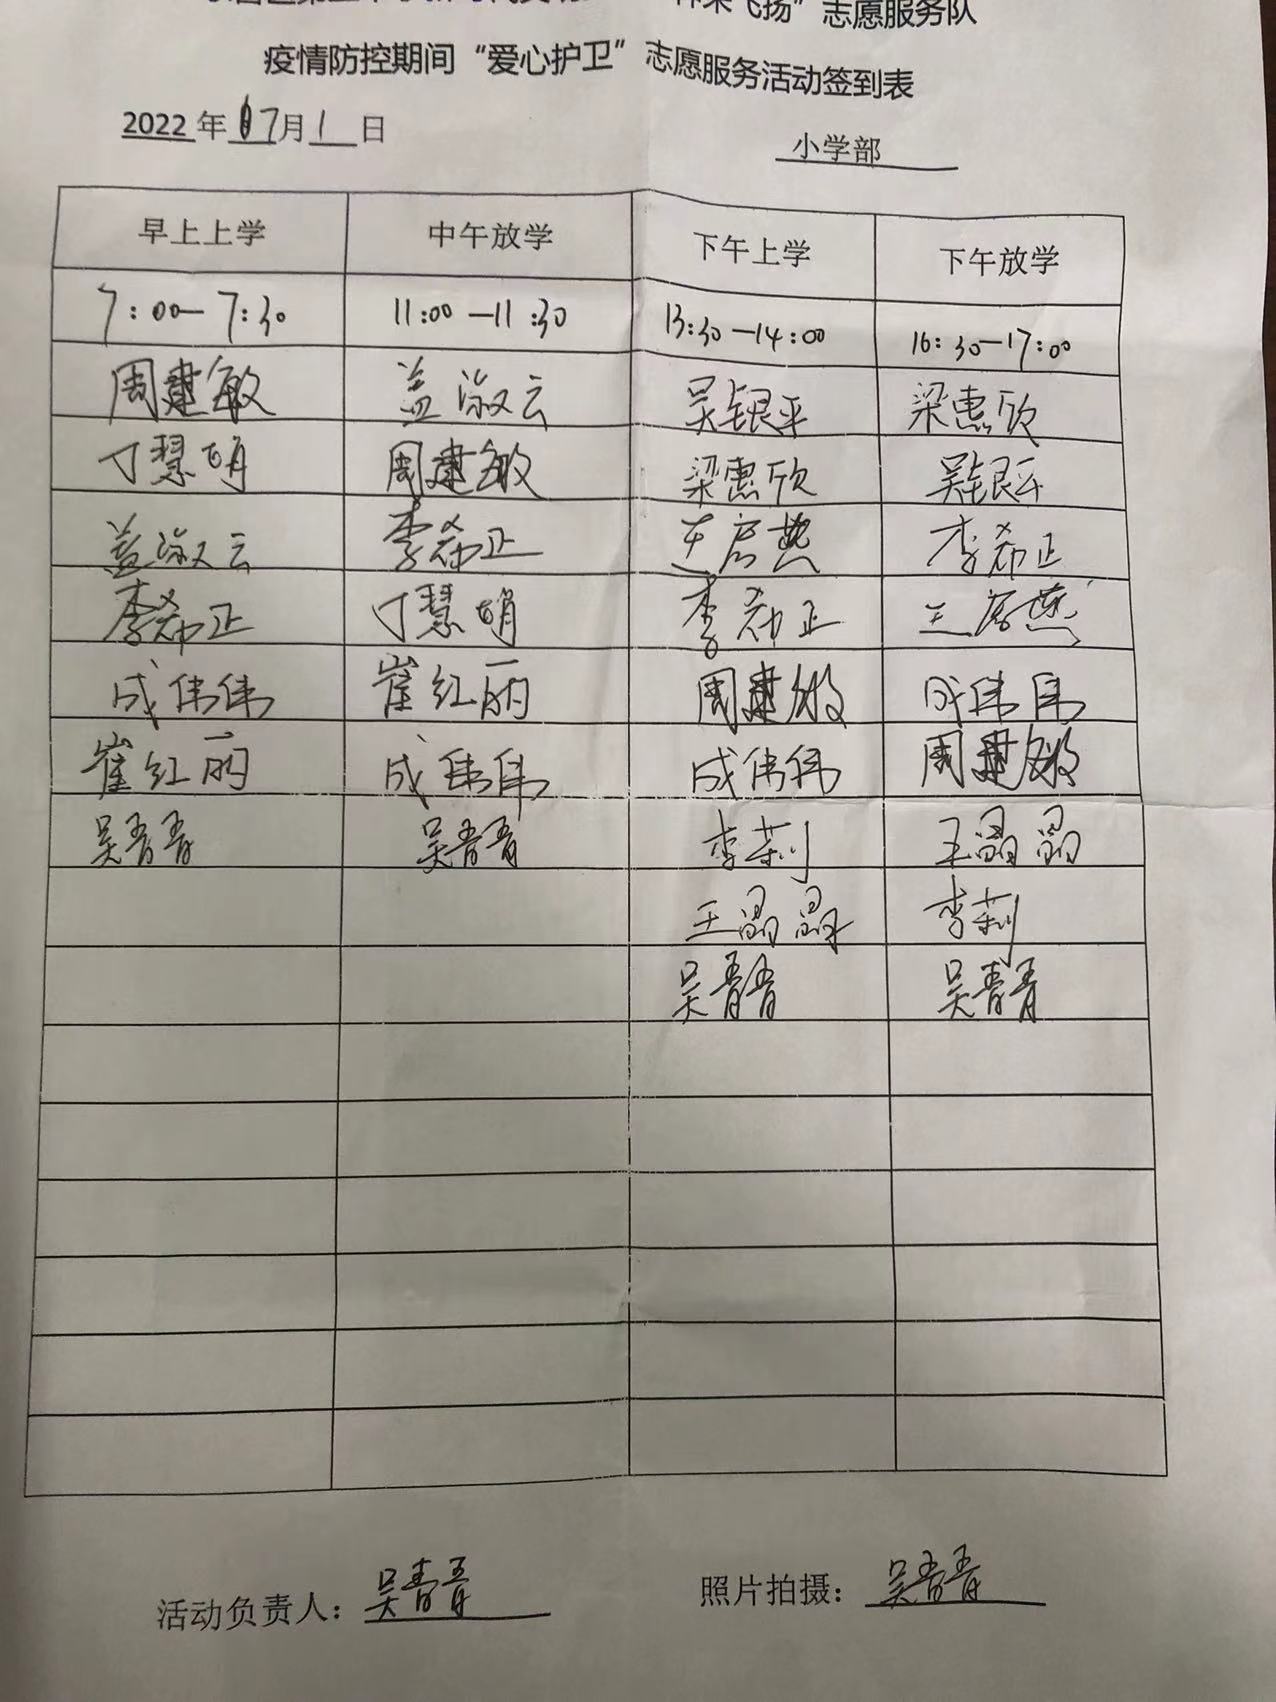 飞扬”志愿服务队
疫情防控期间“爱心护卫”志愿服务活动签到表
2022年07月1日
小学部
早上上学 中午放学 下午上学 下午放学
7:00—7:30 11:00—11:30 13:30—14:00 16:30—17:00
周建敏 盖淑云 吴银平 梁惠欣
丁慧娟 周建敏 梁惠欣 吴银平
盖淑云 李希正 李希正
李希正 丁慧娟 李希正
成伟伟 崔红丽 周建敏 成伟伟
崔红丽 成伟伟 成伟伟 周建敏
吴青青 吴青青 李莉 王晶晶
王晶晶 李莉
吴青青 吴青青
活动负责人：吴青青
照片拍摄：吴青青